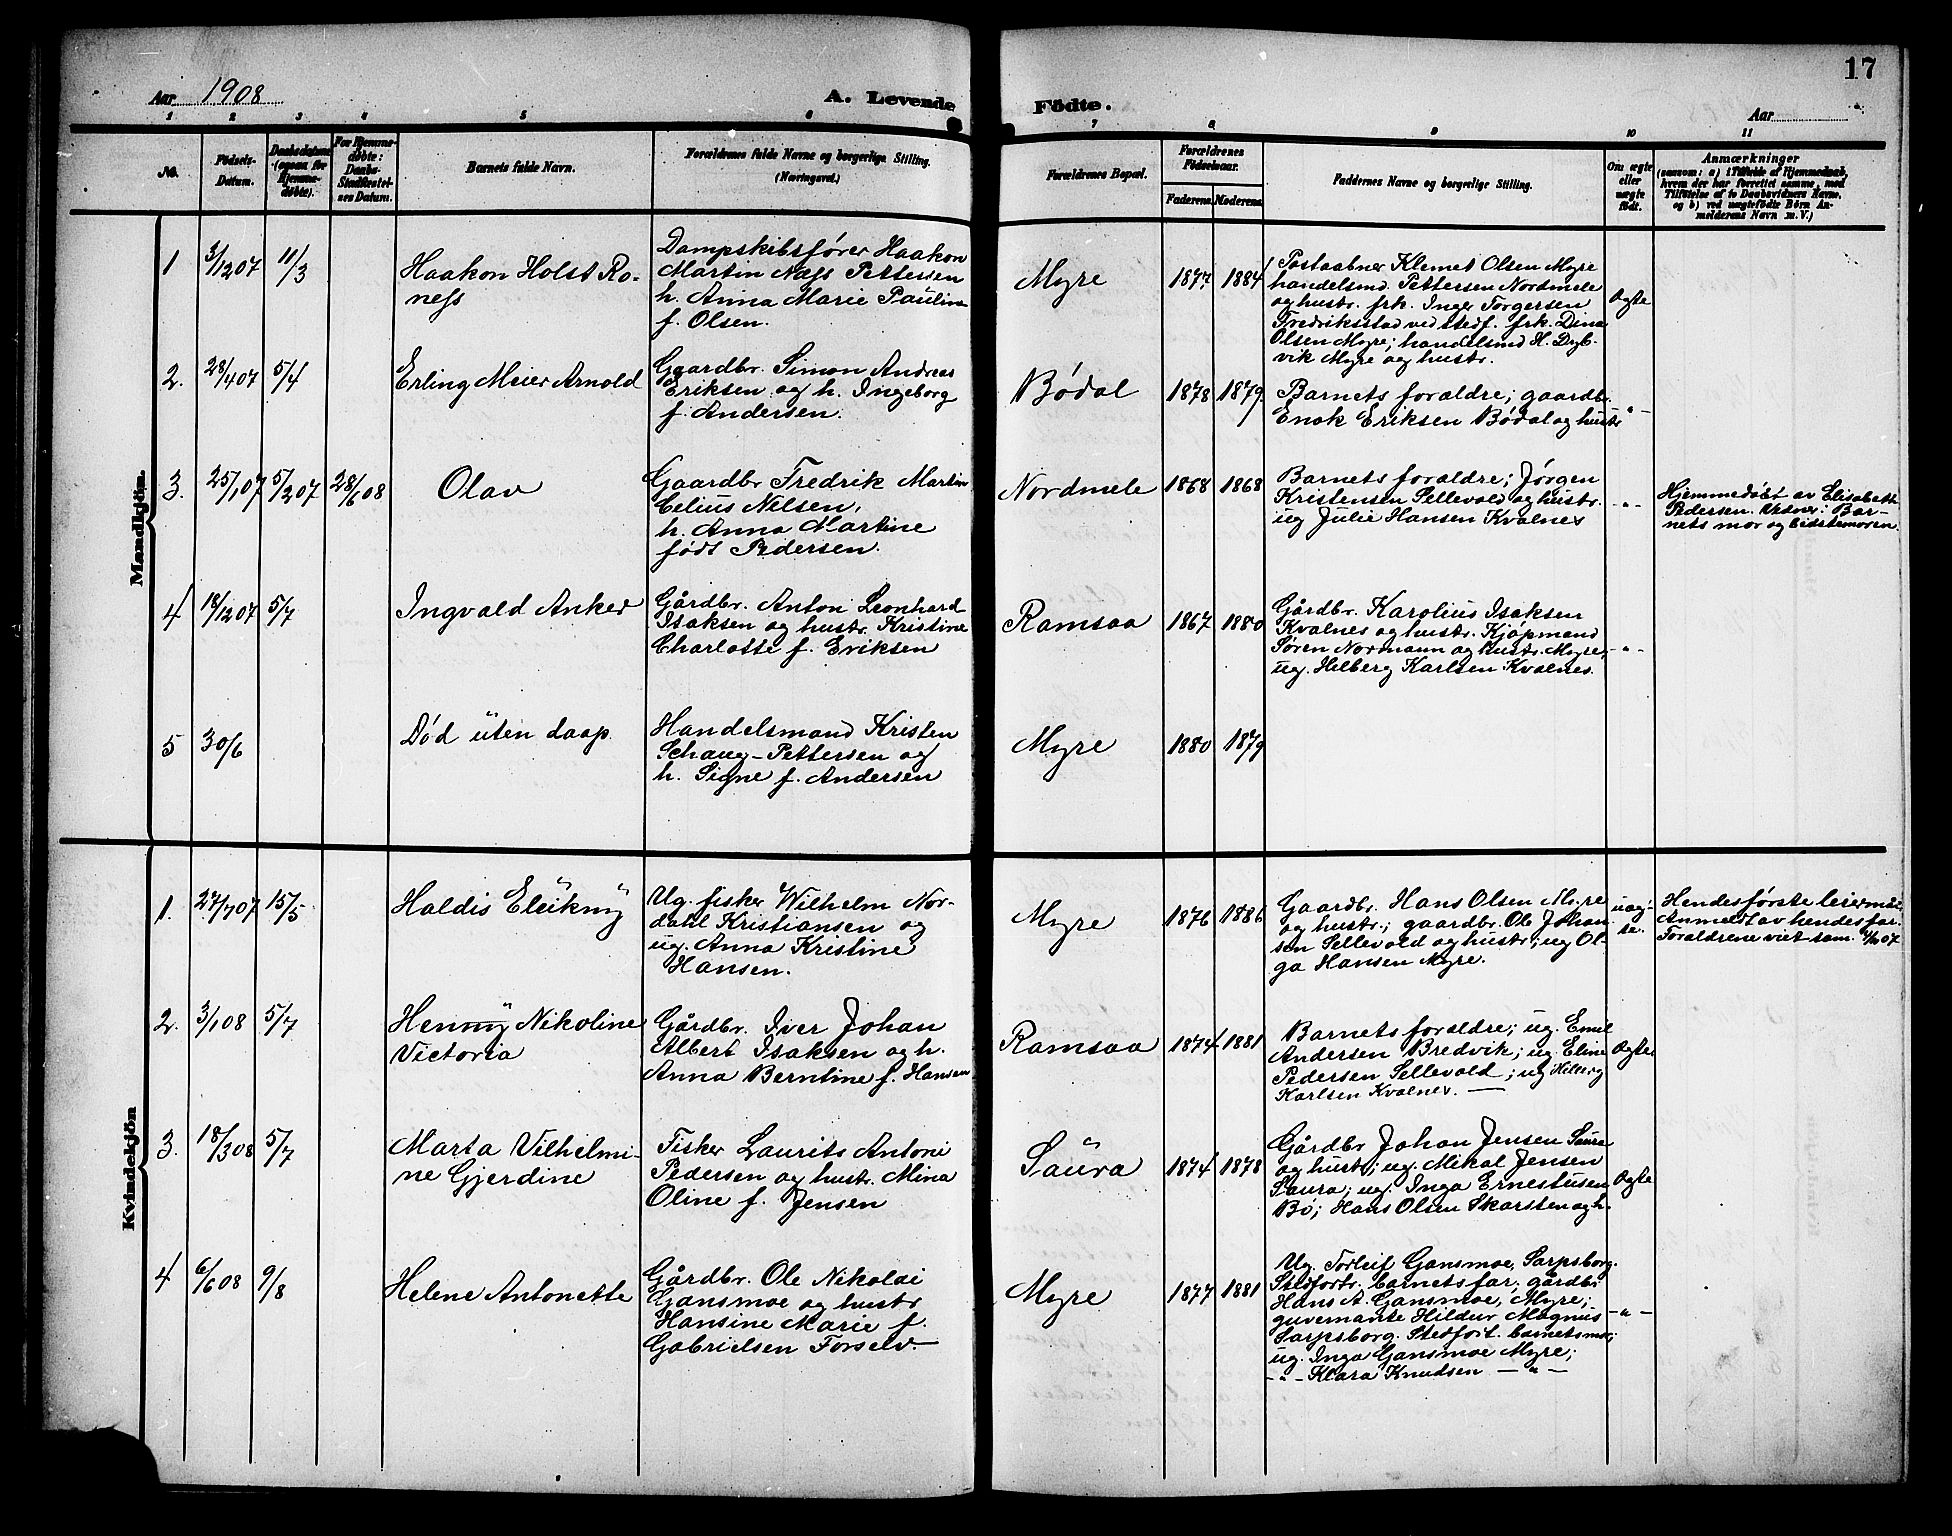 17
Aar 1908
A. Levende Födte.
Aar
1 2 3 4 5 6 7 8 9 10 11
No.
Födsels-
Datum.
Daabsdatum
(ogsaa for
Hjemme-
döbte).
For Hjemme-
döbte:
Daabs-
Stadfæstel-
ses Datum.
Barnets fulde Navn.
Forældrenes fulde Navne og borgerlige Stilling.
(Næringsvei.)
Forældrenes Bopæl.
Forældrenes
Födselsaar.
Faderens. Moderens.
Faddernes Navne og borgerlige Stilling.
Om ægte
eller
uægte
födt.
Anmærkninger
(saasom: a) i Tilfælde af Hjemmedaab,
hvem der har forrettet samme, med
Tilföielse af to Daabsvidners Navne,
og b) ved uægtefödte Börn An-
melderens Navn m. V.)
Mandkjön.
1
3/12 07
11/3
Haakon Holst Ro-
ness
Dampskibsfører Haakon
Martin Næss Pettersen
h. Anna Marie Pauline
f. Olsen.
Myre
1877
1884
Postaabner Klemet Olsen Myre
handelsmd. Pettersen Nordmele
og hustr. frk. Inger Torgersen
Fredriksstad ved stedf. frk. Dina
Olsen Myre; handelsmd H. Dyb-
vik Myre og hustr.
Ægte
2.
28/4 07
5/4
Erling Meier Arnold
Gaardbr. Simon Andreas
Eriksen og h. Ingeborg
f. Andersen.
Bødal
1878
1879
Barnets foraldre; gaardbr.
Enok Eriksen Bødal og hustr
-"-
3.
25/1 07
5/2 07
28/6 08
Olav
Gaardbr Fredrik Martin
Celius Nelsen,
h. Anna Martine
født Pedersen.
Nordmele
1868
1868
Barnets foraldre; Jørgen
Kristensen Sellevold og hustr.
ug Julie Hansen Kvalnes
-"-
Hjemmedøbt av Elisabeth
Pedersen. Vedner: Bar-
nets mor og bidstemoren.
4
18/12 07
5/7
Ingvald Anker
Gårdbr. Anton Leonhard
Isaksen og hustr. Kristine
Charlotte f. Eriksen
Ramsaa
1867
1880
Gårdbr. Karolius Isaksen
Kvalnes og hustr. Kjøpmand
Søren Normann og hustr. Myre,
ug. Hilberg Karlsen Kvalnes.
-"-
5
30/6
Død uten daap
Handelsmand Kristen
Schaug-Pettersen og
h. Signe f. Andersen
Myre
1880
1879
Kvindekjön
1.
27/7 07
15/5
Haldis
Ug. fisker Wilhelm Nor-
dahl Kristiansen og
ug. Anna Kristine
Hansen.
Myre
1876
1886
Gaardbr. Hans Olsen Myre
og hustr.; gaardbr. Ole Johan-
sen Sellevold og hustr; ug Ol-
ga Hansen Myre.
uæg-
te.
Hendes første leiermål
Anmeldt av hendes far.
Foraldrene viet sam.
2.
3/1 08
5/7
Henny Nikoline
Victoria
Gårdbr. Iver Johan
Albert Isaksen og h.
Anna Berntine f. Hansen
Ramsaa
1874
1881
Barnets foraldre; ug. Emil
Andersen Bredvik; ug. Eline
Pedersen Sellevold; ug Hilberg
Karlsen Kvalnes. —
Ægte
3.
18/3 08
5/7
Marta Vilhelmi-
ne Gjerdine
Fisker Laurits Antoni
Pedersen og hustr. Mina
Oline f. Jensen
Saura
1874
1878
Gårdbr Johan Jensen Saura
og hustr; ug. Mikal Jensen
Saura; ug. Inga Ernestusen
Bø; Hans Olsen Skarsten og h.
Ægte
4
6/6 08
9/8
Helene Antonette
Gårdbr. Ole Nikolai
Gansmoe og hustr
Hansine Marie f.
Gabrielsen Forselv.
Myre
1877
1881
Ug. Torleif Gansmoe, Sarpsborg.
Stedfortr. barnets far, gårdbr
Hans A. Gansmoe, Myre;
guvernante Hildur Magnus
Sarpsborg. Stedfort. barnets mor;
ug. Inga Gansmoe Myre;
-"- Klara Knudsen -"-
-"-